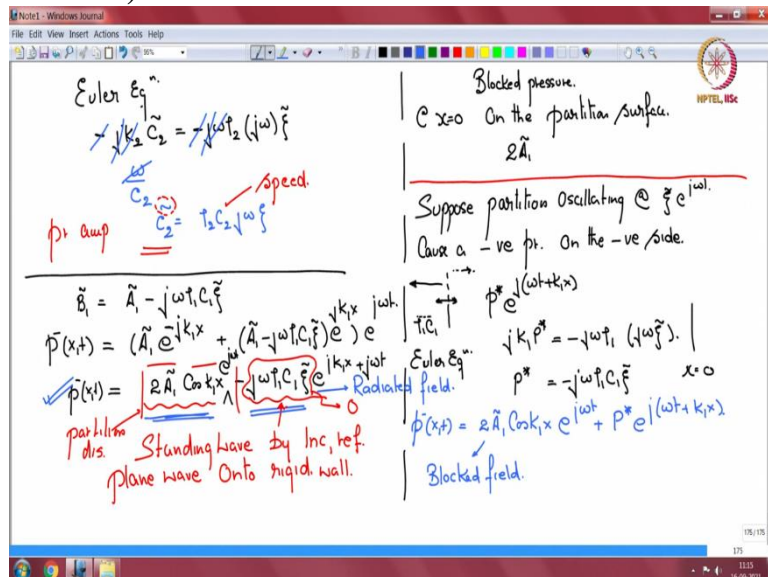 Note1 - Windows Journal
File Edit View Insert Actions Tools Help
NPTEL, IISc
Euler Eqⁿ.
-jk₂ C̃₂ = -jωρ₂ (jω) ξ̃
ω
C₂
C̃₂ = ρ₂C₂ jω ξ̃
speed.
pr amp
B̃₁ = Ã₁ - jωρ₁C₁ξ̃
p⁻(x,t) = (Ã₁ e^{-jk₁x} + (Ã₁ - jωρ₁C₁ξ̃) e^{jk₁x}) e^{jωt}
p⁻(x,t) = 2Ã₁ Cos k₁x e^{jωt} - jωρ₁C₁ξ̃ e^{jk₁x + jωt}
Radiated field.
0
partition dis.
Standing wave by Inc, ref.
plane wave Onto rigid wall.
Blocked pressure.
@ x=0 On the partition surface.
2Ã₁
Suppose partition Oscillating @ ξ̃ e^{jωt}.
Cause a -ve pr. On the -ve side.
ρ₁C₁
p* e^{j(ωt+k₁x)}
Euler Eqⁿ.
jk₁p* = -jωρ₁ (jωξ̃).
x=0
p* = -jωρ₁C₁ξ̃
p⁻(x,t) = 2Ã₁ Cos k₁x e^{jωt} + p* e^{j(ωt + k₁x)}
Blocked field.
175/175
175
11:15
16-09-2021